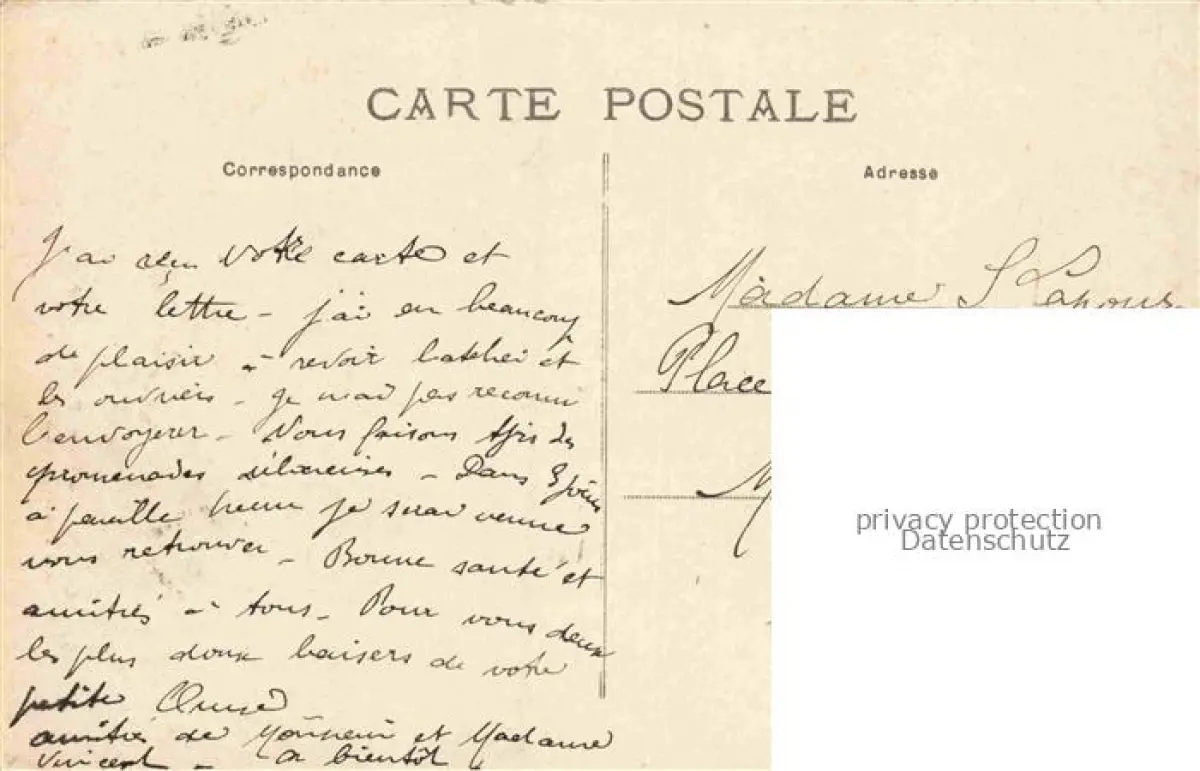 CARTE POSTALE
Correspondance
Adresse
J'ai reçu votre carte et
votre lettre - j'ai eu beaucoup
de plaisir à revoir et
les ouvriers - Je pas reconnu
- Nous faisons des
promenades silencieuses - Dans 8 jours
à pareille heure je serai venue
vous retrouver - Bonne santé et
amitiés à tous - Pour vous deux
les plus doux baisers de votre
petite
amitiés de Monsieur et Madame
Vincent - a bientôt
Madame
Place
privacy protection
Datenschutz